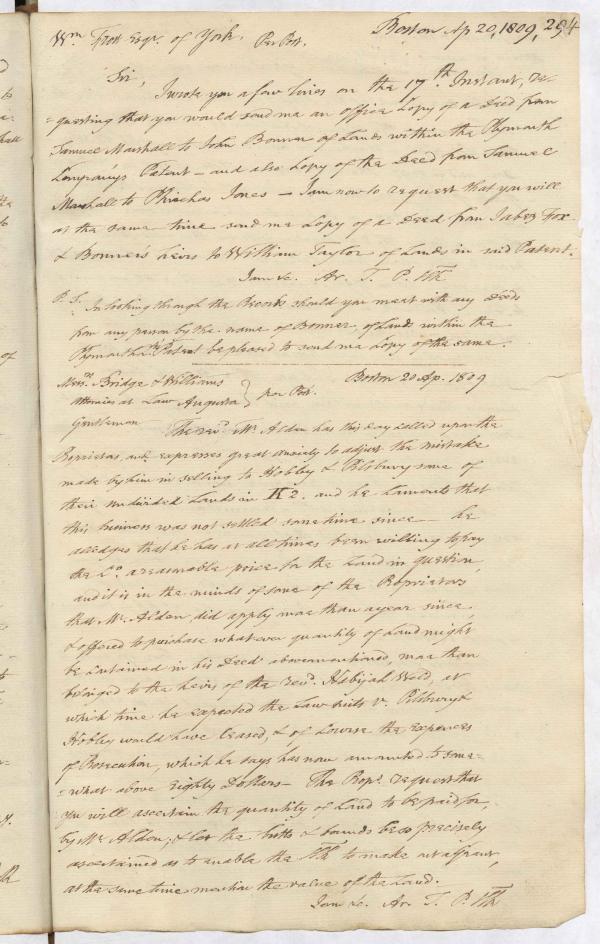 Boston Ap 20, 1809, 294
Wm. Frost Esqr. of York. Per Post.
Sir,
I wrote you a few lines on the 17th Instant, re-
=questing that you would send me an office Copy of a Deed from
Samuel Marshall to John Bonner of Lands within the Plymouth
Company's Patent - and also Copy of the Deed from Samuel
Marshall to Phinehas Jones - I am now to request that you will
at the same time send me Copy of a Deed from Jabez Fox
& Bonner's heirs to William Taylor of Lands in said Patent.
I am &c. Ar. T. P. Clk
P.S. In looking through the Records should you meet with any Deeds
from any person by the name of Bonner, of Lands within the
Plymouth Co. Patent be pleased to send me Copy of the same.
Messrs. Bridge & Williams Boston 20 Ap. 1809
Attornies at Law Augusta } per Post.
Gentlemen
The revd. Mr. Alden has this day called upon the
Proprietors, who expresses great anxiety to adjust the mistake
made by him in selling to Hobby & Pilsbury some of
their undivided Lands in K 2. and he Laments that
this business was not settled sometime since - he
alledges that he has at all times been willing to pay
the Co. a reasonable price for the Land in question,
and it is in the minds of some of the Proprietors
that Mr. Alden did apply more than a year since
& offered to purchase whatever quantity of Land might
be Contained in his Deed abovementioned, more than
belonged to the heirs of the revd. Habijah Weld, at
which time he expected the Law suits v. Pilsbury &
Hobby would have Ceased, & of Course the expences
of Prosecution, which he says has now amounted to some-
=what above Eighty Dollars - The Propr. request that
you will ascertain the quantity of Land to be paid for,
by Mr. Alden; & let the butts & bounds be so precisely
ascertained as to enable the Clk to make out a grant,
at the same time mention the value of the Land.
I am &c. Ar. T. P. Clk